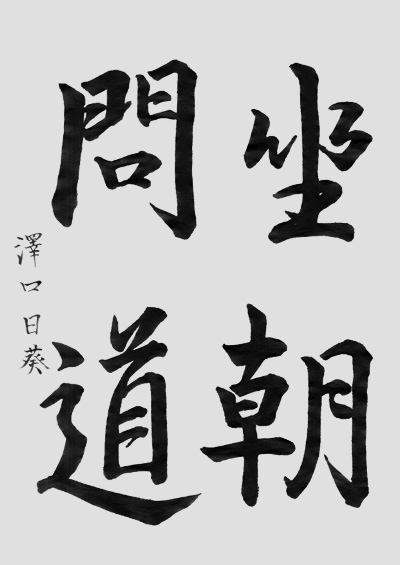 坐朝
問道
澤口日葵